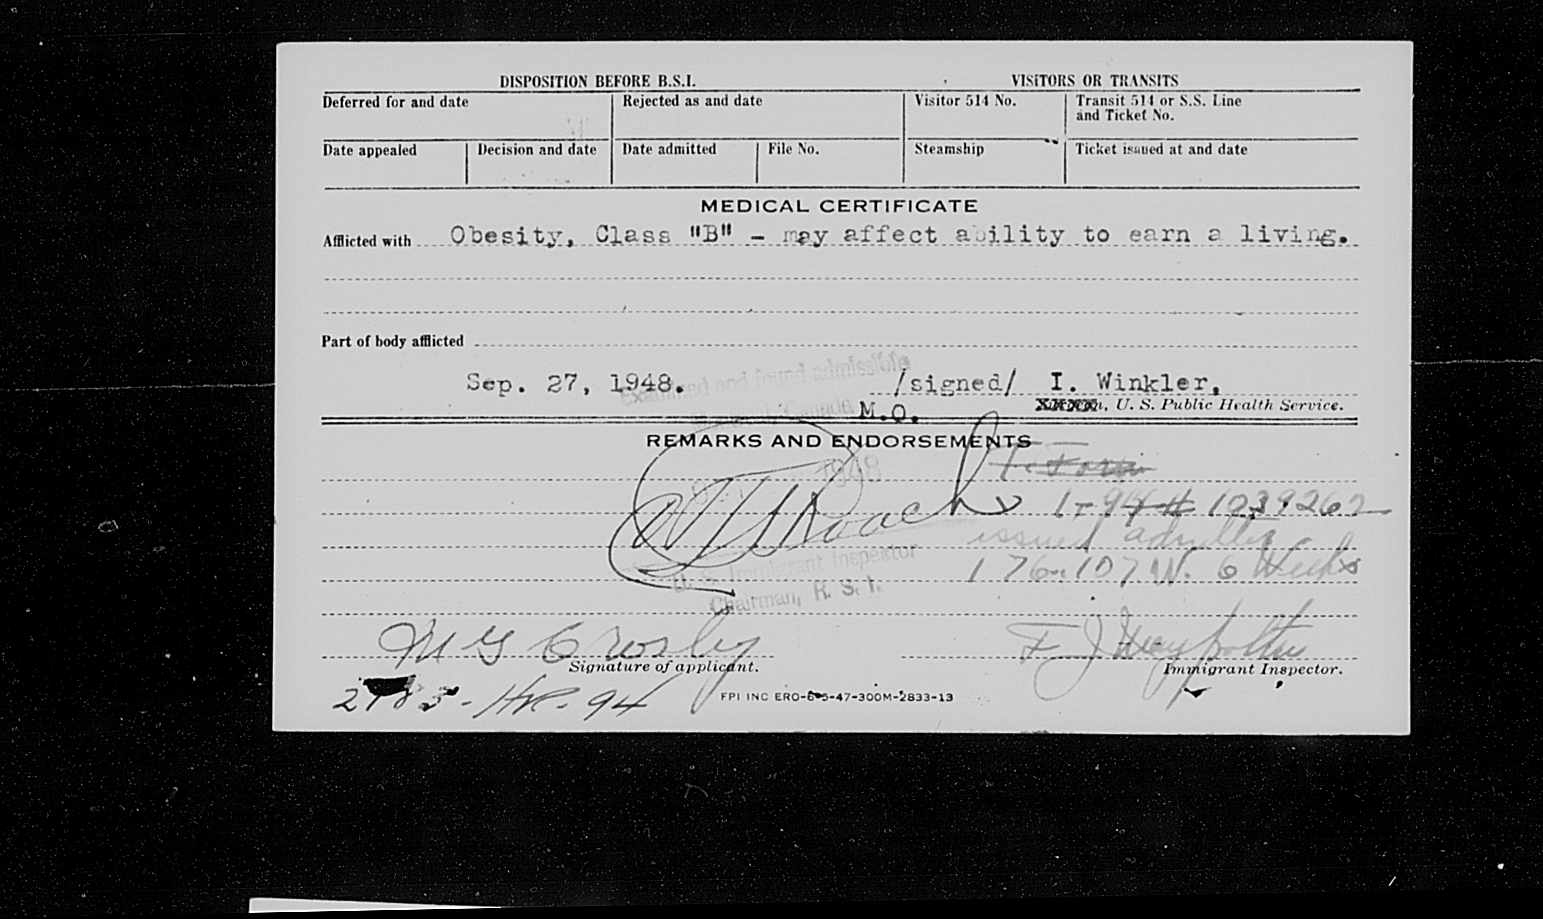 DISPOSITION BEFORE B.S.I.
VISITORS OR TRANSITS
Deferred for and date
Rejected as and date
Visitor 514 No.
Transit 514 or S.S. Line
and Ticket No.
Date appealed
Decision and date
Date admitted
File No.
Steamship
Ticket issued at and date
MEDICAL CERTIFICATE
Afflicted with Obesity, Class "B" - may affect ability to earn a living.
Part of body afflicted
Examined and found admissible
Sep. 27, 1948.
/signed/ I. Winkler,
Canada
M.O.
U. S. Public Health Service.
REMARKS AND ENDORSEMENTS
1948
Roach
1-94 # 1239262
issued
176-107 W. 6 Weeks
U. S. Immigrant Inspector
Chairman, B. S. I.
M G Crosby
F J
Signature of applicant.
Immigrant Inspector.
FPI INC ERO-6-5-47-300M-2833-13